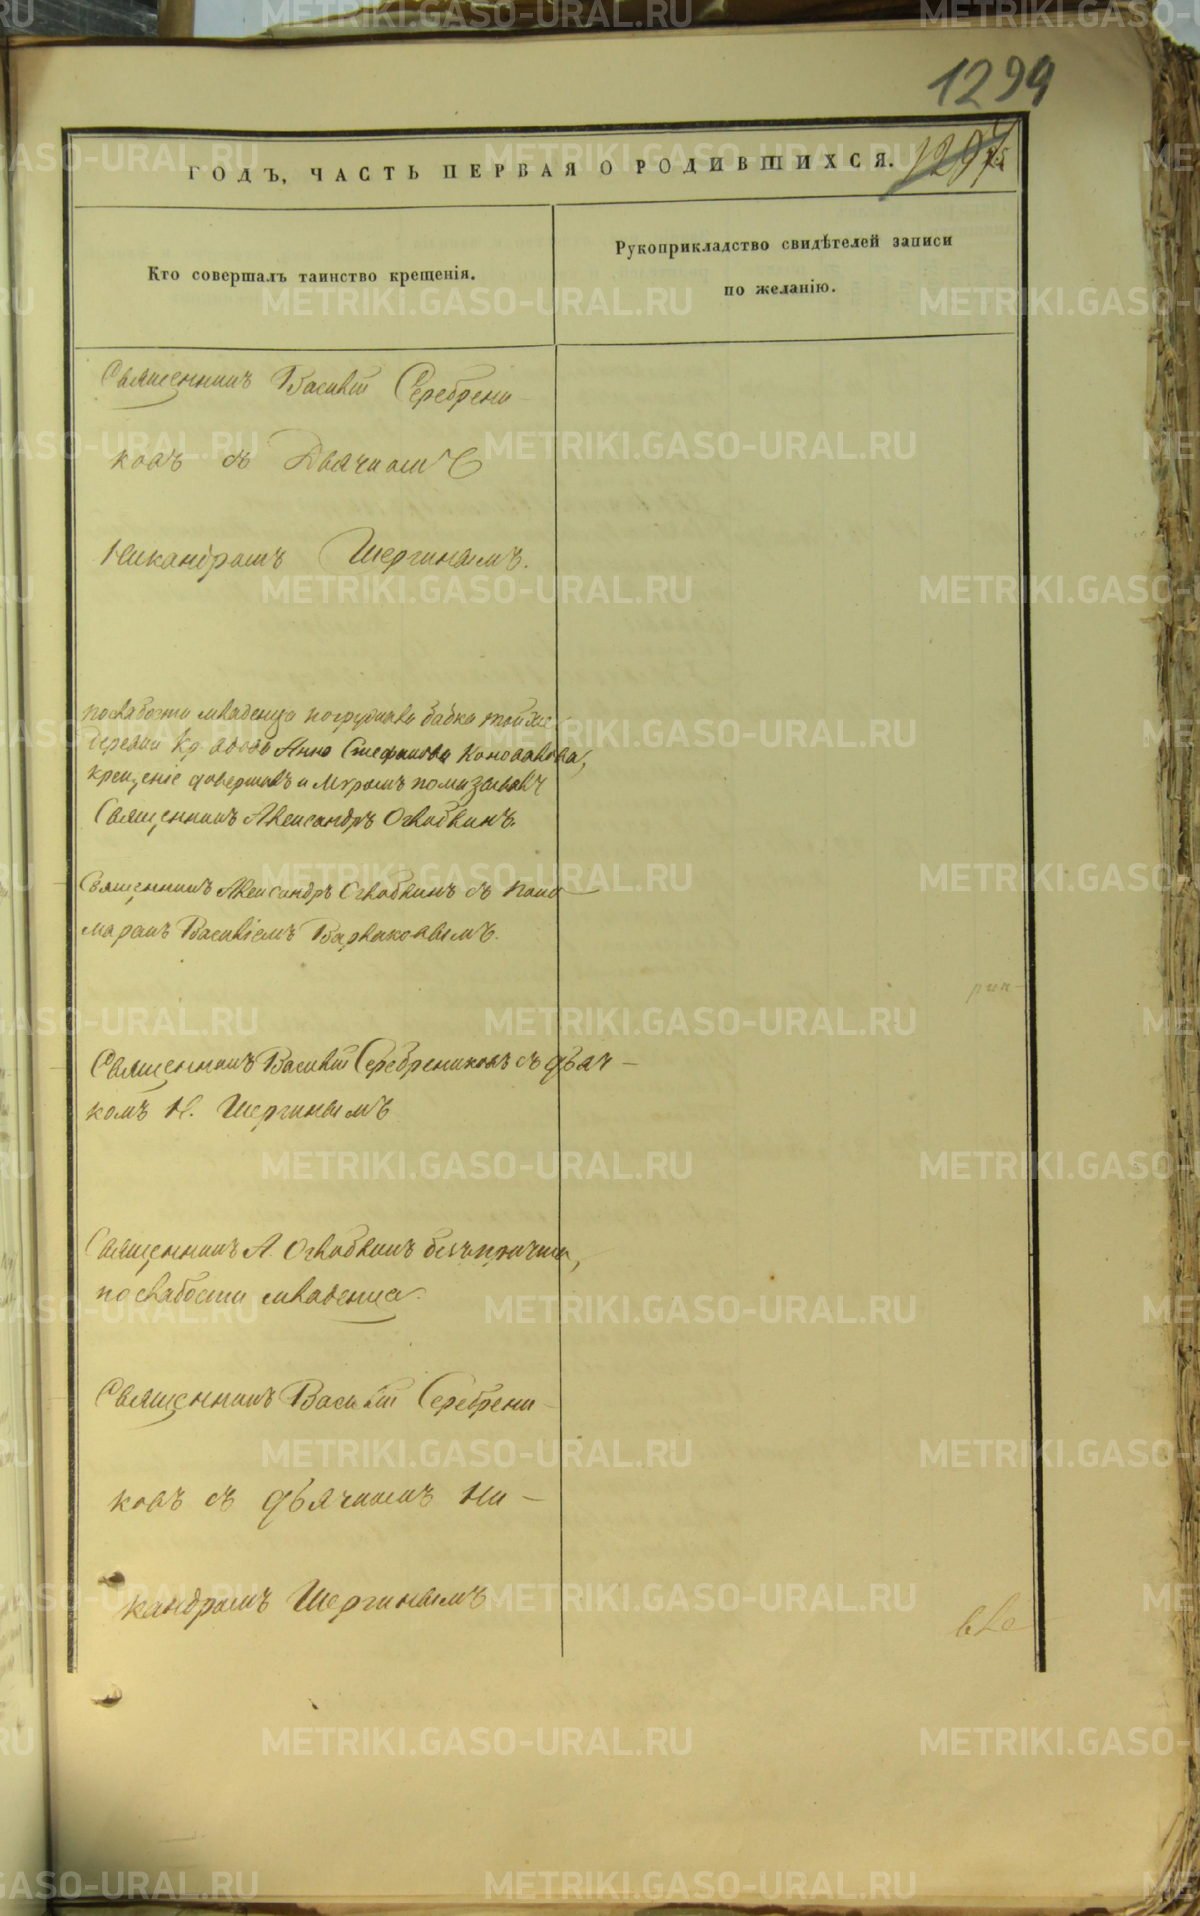 1299
ГОДЪ, ЧАСТЬ ПЕРВАЯ О РОДИВШИХСЯ.
Кто совершалъ таинство крещенія.
Рукоприкладство свидѣтелей записи
по желанію.
Священникъ Василій Серебрени-
ковъ съ Дьячкомъ
Никандромъ Шергинымъ.
по слабости младенца погружала бабка той же
деревни Кр. вдова Анна Стефанова Коновалова,
крещеніе довершилъ и Муромъ помазывалъ
Священникъ Александръ Оглоблинъ.
Священникъ Александръ Оглоблинъ съ Поно-
маремъ Василіемъ Варлаковымъ.
Священникъ Василій Серебрениковъ съ дьяч-
комъ Н. Шергинымъ
Священникъ А. Оглоблинъ безъ причта,
по слабости младенца.
Священникъ Василій Серебрени-
ковъ съ дьячкомъ Ни-
кандромъ Шергинымъ
METRIKI.GASO-URAL.RU